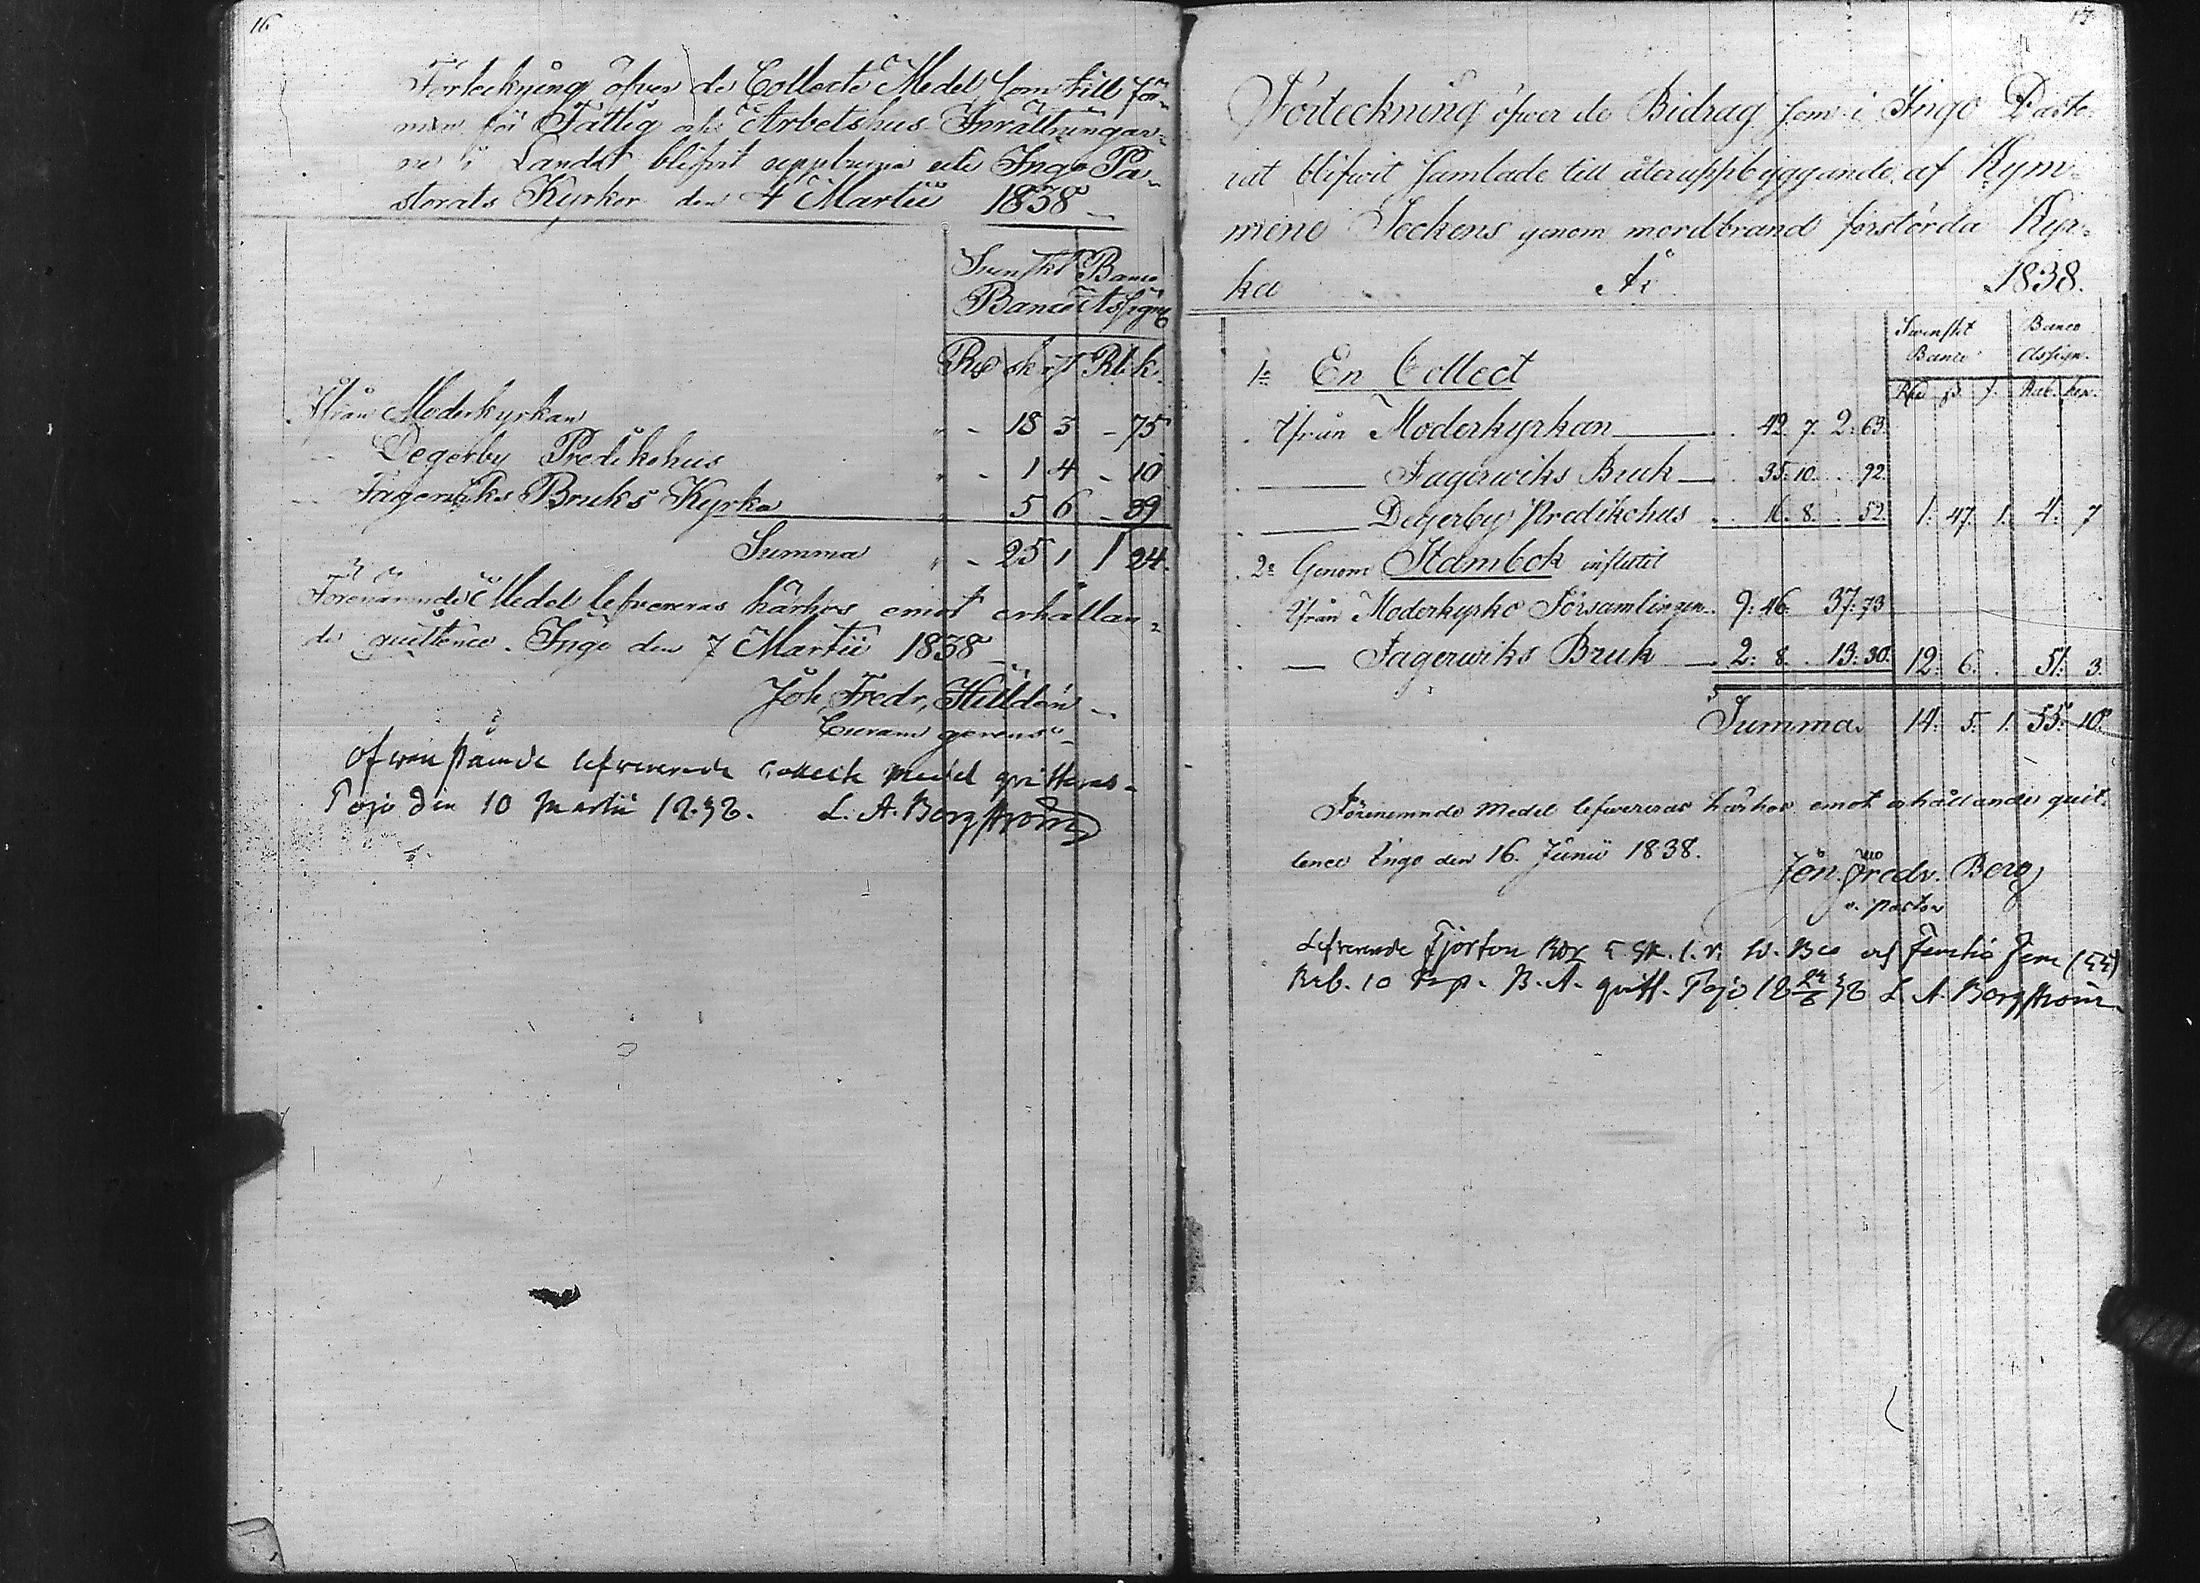 16
Förteckning öfver de Collecte Medel som till för-
mån för Fattig och Arbetshus Inrättningar-
ne i Landet blifvit uppburne uti Ingo Pa-
storats Kyrkor den 4 Martii 1838
Svenskt Banco
Banco Assign
Rd sk rst Rb. k.
Ifrån Moderkyrkan " - 18 3 - 75
Degerby Predikohus " - 1 4 - 10
Fagerviks Bruks Kyrka 5 6 - 39
Summa " - 25 1 1 24.
Förenämnde Medel lefvereras härhos emot erhållan-
de quittence. Ingo den 7 Martii 1838
Joh. Fredr. Hilldén
Curam gerens
Ofvanstående lefvererade Collect Medel quitteras.
Pojo den 10 Martii 1838. L. A. Borgström
17
Förteckning öfver de Bidrag som i Ingo Pasto-
rat blifwit samlade till återuppbyggande af Kym-
mene Sockens genom mordbrand förstörda Kyr-
ka År 1838.
Swenskt Banco
Banco Assign.
Rd s. r. Rub. Kop.
1o En Collect
Ifrån Moderkyrkan 42. 7. 2. 63.
Fagerwiks Bruk 35. 10. 92.
Degerby Predikohus 16. 8. 52. 1. 47. 1. 4. 7
2o Genom Stambok influtit
Ifrån Moderkyrko Församlingen 9: 46. 37: 73
Fagerwiks Bruk 2: 8. 13: 30. 12: 6. 51: 3.
Summa 14: 5: 1. 55: 10.
Förenemnde Medel lefwereras härhos emot erhållande quit-
tence Ingo den 16. Junii 1838.
Fredr. Berg
v. pastor
Lefvererade Fjorton Rdr 5 sk. 1. r. Bco och Femtio Fem (55)
Rub. 10 Kop. B. A. quitt. Pojo 18 24/6 38 L. A. Borgström